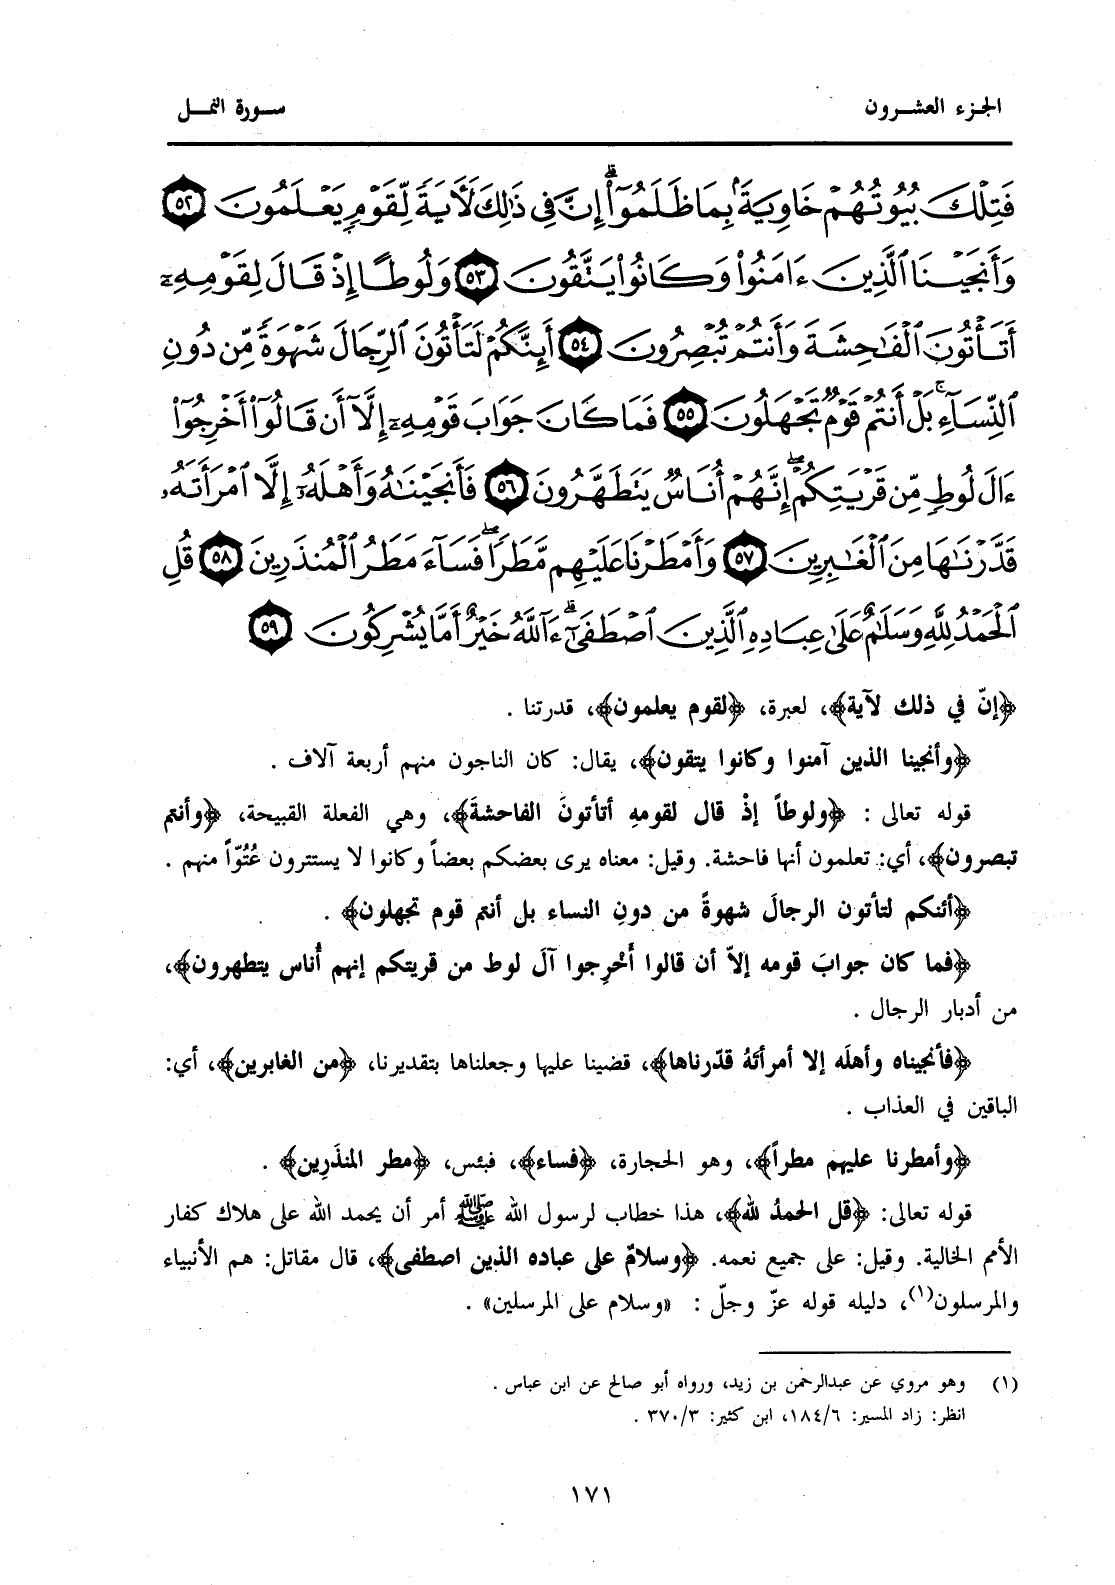 الجزء العشرون
سورة النمل
فَتِلْكَ بُيُوتُهُمْ خَاوِيَةًۢ بِمَا ظَلَمُوٓا۟ ۗ إِنَّ فِى ذَٰلِكَ لَءَايَةً لِّقَوْمٍ يَعْلَمُونَ ٥٢
وَأَنجَيْنَا ٱلَّذِينَ ءَامَنُوا۟ وَكَانُوا۟ يَتَّقُونَ ٥٣ وَلُوطًا إِذْ قَالَ لِقَوْمِهِۦٓ
أَتَأْتُونَ ٱلْفَٰحِشَةَ وَأَنتُمْ تُبْصِرُونَ ٥٤ أَئِنَّكُمْ لَتَأْتُونَ ٱلرِّجَالَ شَهْوَةً مِّن دُونِ
ٱلنِّسَآءِ ۚ بَلْ أَنتُمْ قَوْمٌ تَجْهَلُونَ ٥٥ فَمَا كَانَ جَوَابَ قَوْمِهِۦٓ إِلَّآ أَن قَالُوٓا۟ أَخْرِجُوٓا۟
ءَالَ لُوطٍ مِّن قَرْيَتِكُمْ ۖ إِنَّهُمْ أُنَاسٌ يَتَطَهَّرُونَ ٥٦ فَأَنجَيْنَٰهُ وَأَهْلَهُۥٓ إِلَّا ٱمْرَأَتَهُۥ
قَدَّرْنَٰهَا مِنَ ٱلْغَٰبِرِينَ ٥٧ وَأَمْطَرْنَا عَلَيْهِم مَّطَرًا ۖ فَسَآءَ مَطَرُ ٱلْمُنذَرِينَ ٥٨ قُلِ
ٱلْحَمْدُ لِلَّهِ وَسَلَٰمٌ عَلَىٰ عِبَادِهِ ٱلَّذِينَ ٱصْطَفَىٰٓ ۗ ءَآللَّهُ خَيْرٌ أَمَّا يُشْرِكُونَ ٥٩
﴿إنّ في ذلك لآية﴾، لعبرة، ﴿لقوم يعلمون﴾، قدرتنا .
﴿وأنجينا الذين آمنوا وكانوا يتقون﴾، يقال: كان الناجون منهم أربعة آلاف .
قوله تعالى : ﴿ولوطاً إذْ قال لقومهِ أتأتونَ الفاحشةَ﴾، وهي الفعلة القبيحة، ﴿وأنتم
تبصرون﴾، أي: تعلمون أنها فاحشة. وقيل: معناه يرى بعضكم بعضاً وكانوا لا يستترون عُتُوّاً منهم .
﴿أئنكم لتأتون الرجالَ شهوةً من دونِ النساء بل أنتم قوم تجهلون﴾ .
﴿فما كان جوابَ قومه إلاّ أن قالوا أَخْرِجوا آلَ لوط من قريتكم إنهم أُناس يتطهرون﴾،
من أدبار الرجال .
﴿فأنجيناه وأهلَه إلا أمرأتَهُ قدّرناها﴾، قضينا عليها وجعلناها بتقديرنا، ﴿من الغابرين﴾، أي:
الباقين في العذاب .
﴿وأمطرنا عليهم مطراً﴾، وهو الحجارة، ﴿فساء﴾، فبئس، ﴿مطر المنذَرِين﴾ .
قوله تعالى: ﴿قل الحمدُ لله﴾، هذا خطاب لرسول الله ﷺ أمر أن يحمد الله على هلاك كفار
الأمم الخالية. وقيل: على جميع نعمه. ﴿وسلامٌ على عباده الذين اصطفى﴾، قال مقاتل: هم الأنبياء
والمرسلون(١)، دليله قوله عزّ وجلّ : «وسلام على المرسلين» .
(١) وهو مروي عن عبدالرحمن بن زيد، ورواه أبو صالح عن ابن عباس .
انظر: زاد المسير: ١٨٤/٦، ابن كثير: ٣٧٠/٣ .
١٧١